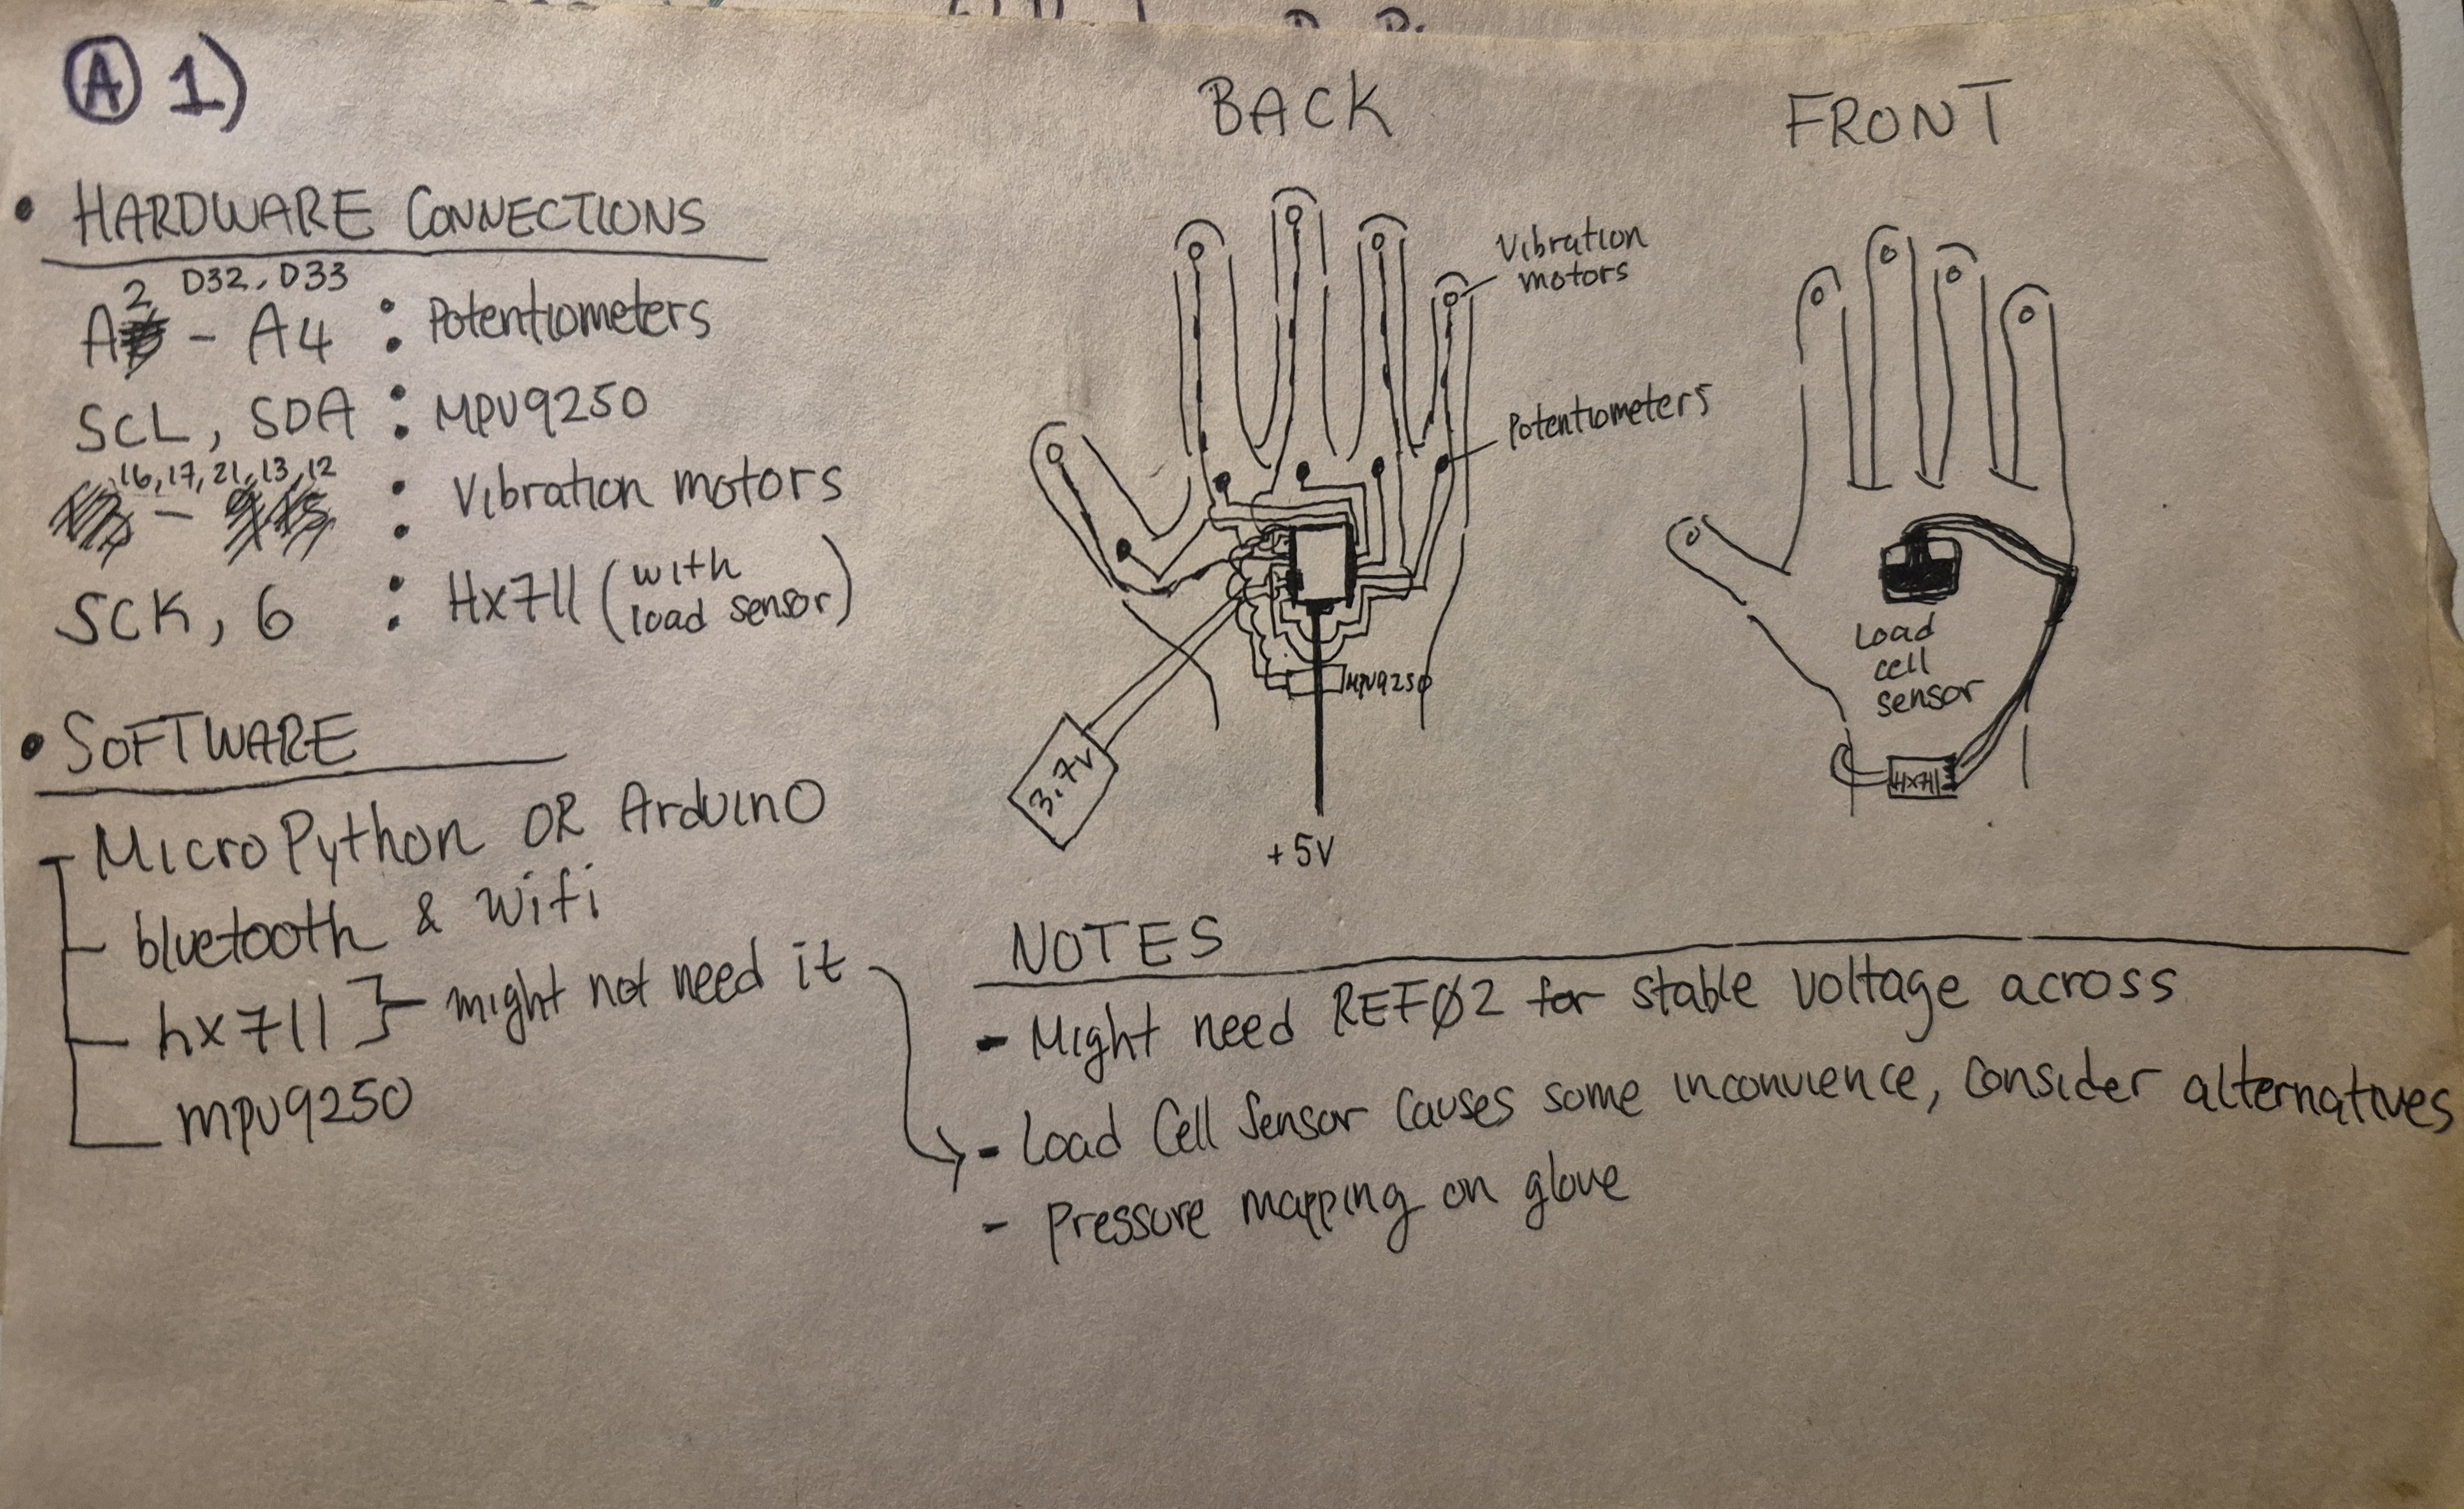 A 1)
HARDWARE CONNECTIONS
D32, D33
A2 - A4 : Potentiometers
SCL, SDA : MPU9250
16, 17, 21, 13, 12
- : Vibration motors
SCK, 6 : Hx711 (with load sensor)
SOFTWARE
MicroPython OR Arduino
bluetooth & Wifi
hx711 } might not need it
mpu9250
BACK
Vibration
motors
Potentiometers
MPU9250
3.7V
+5V
FRONT
Load
cell
sensor
HX711
NOTES
- Might need REF02 for stable voltage across
- Load Cell Sensor causes some inconvience, consider alternatives
- Pressure mapping on glove